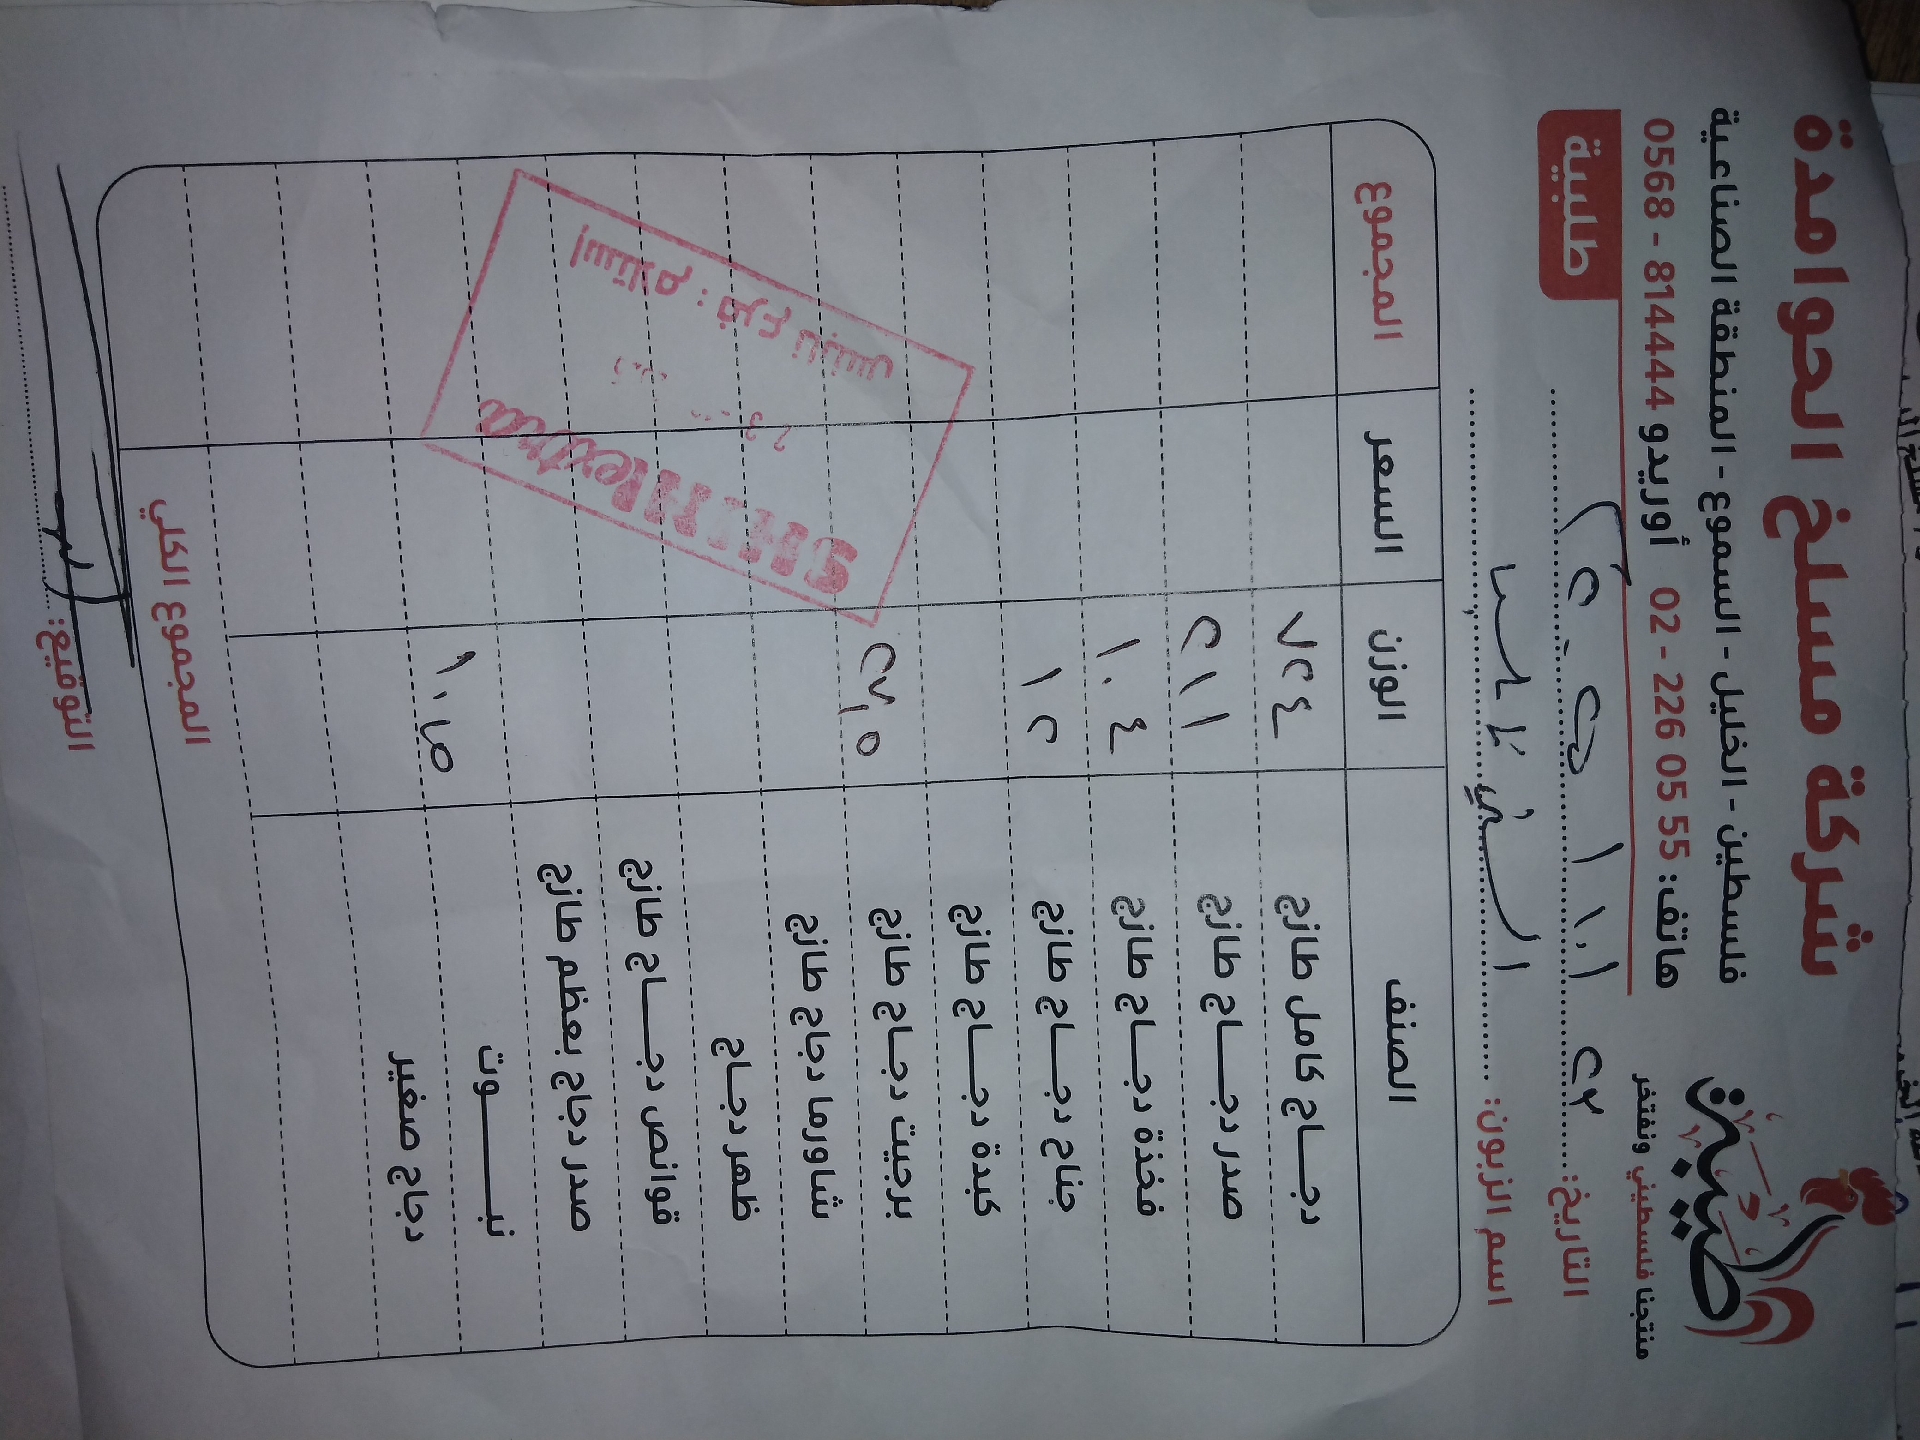 شركة مسلخ الحوامدة
فلسطين - الخليل - السموع - المنطقة الصناعية
هاتف: 02 - 226 05 55 أوريدو 0568 - 814444
الطيبة
منتجنا فلسطيني ونفتخر
طلبية
التاريخ:
اسم الزبون: السني نابلس
الصنف الوزن السعر المجموع
دجاج كامل طازج ٧٢٤
صدر دجاج طازج ٢١١
فخذة دجاج طازج ١٠٤
جناح دجاج طازج ١٢
كبدة دجاج طازج
برجيت دجاج طازج ٢٧,٥
شاورما دجاج طازج
ظهر دجاج
قوانص دجاج طازج
صدر دجاج بعظم طازج
نبوت
دجاج صغير
المجموع الكلي
التوقيع:
SHINI extra
فرع نابلس
إستلام :